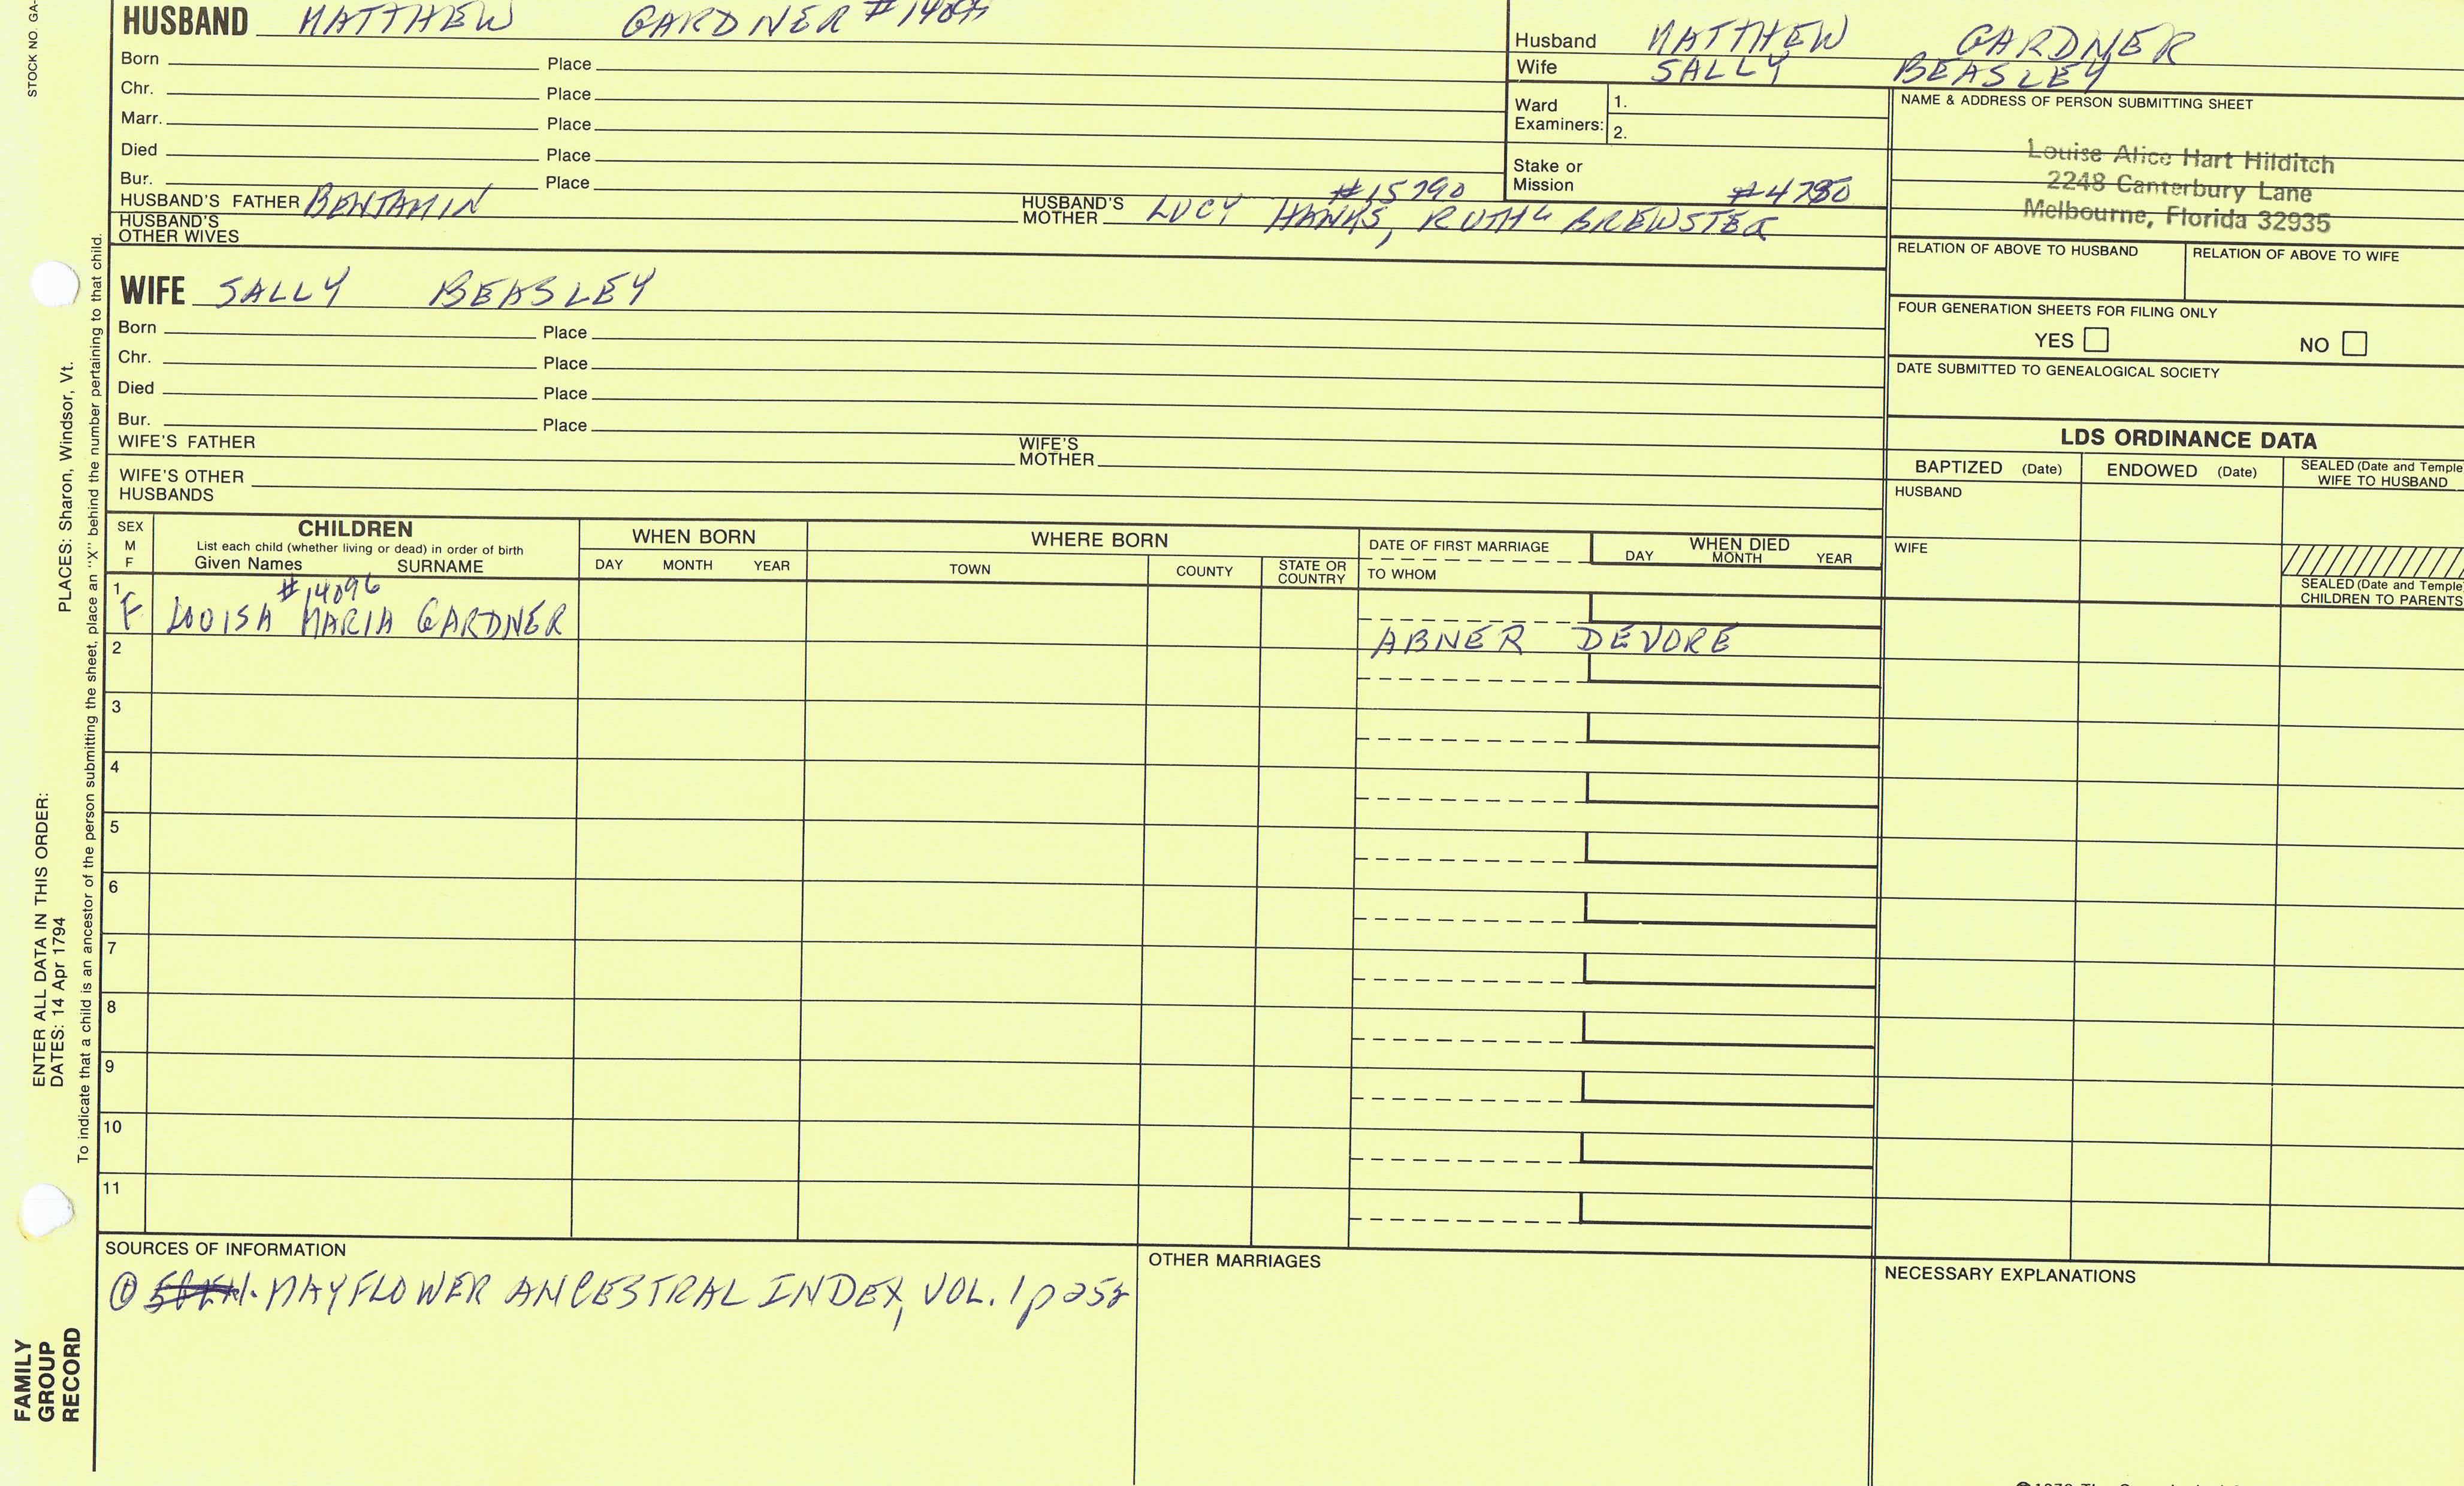 STOCK NO. GA-
HUSBAND MATTHEW GARDNER
Born Place
Chr. Place
Marr. Place
Died Place
Bur. Place
HUSBAND'S FATHER BENJAMIN HUSBAND'S MOTHER LUCY HANKS, RUTH BREWSTER
#15790 #4780
HUSBAND'S OTHER WIVES
Husband MATTHEW GARDNER
Wife SALLY BEASLEY
Ward Examiners: 1.
2.
Stake or Mission
NAME & ADDRESS OF PERSON SUBMITTING SHEET
Louise Alice Hart Hilditch
2248 Canterbury Lane
Melbourne, Florida 32935
RELATION OF ABOVE TO HUSBAND RELATION OF ABOVE TO WIFE
FOUR GENERATION SHEETS FOR FILING ONLY
YES NO
DATE SUBMITTED TO GENEALOGICAL SOCIETY
WIFE SALLY BEASLEY
Born Place
Chr. Place
Died Place
Bur. Place
WIFE'S FATHER WIFE'S MOTHER
WIFE'S OTHER HUSBANDS
LDS ORDINANCE DATA
BAPTIZED (Date) ENDOWED (Date) SEALED (Date and Temple
WIFE TO HUSBAND
HUSBAND
WIFE
SEALED (Date and Temple)
CHILDREN TO PARENTS
SEX
M
F
CHILDREN
List each child (whether living or dead) in order of birth
Given Names SURNAME
WHEN BORN
DAY MONTH YEAR
WHERE BORN
TOWN COUNTY STATE OR COUNTRY
DATE OF FIRST MARRIAGE
TO WHOM
WHEN DIED
DAY MONTH YEAR
#14096
1 F LOUISA MARIA GARDNER
ABNER DEVORE
2
3
4
5
6
7
8
9
10
11
SOURCES OF INFORMATION
① MAYFLOWER ANCESTRAL INDEX, VOL. 1
OTHER MARRIAGES
NECESSARY EXPLANATIONS
ENTER ALL DATA IN THIS ORDER:
DATES: 14 Apr 1794 PLACES: Sharon, Windsor, Vt.
To indicate that a child is an ancestor of the person submitting the sheet, place an "X" behind the number pertaining to that child.
FAMILY
GROUP
RECORD